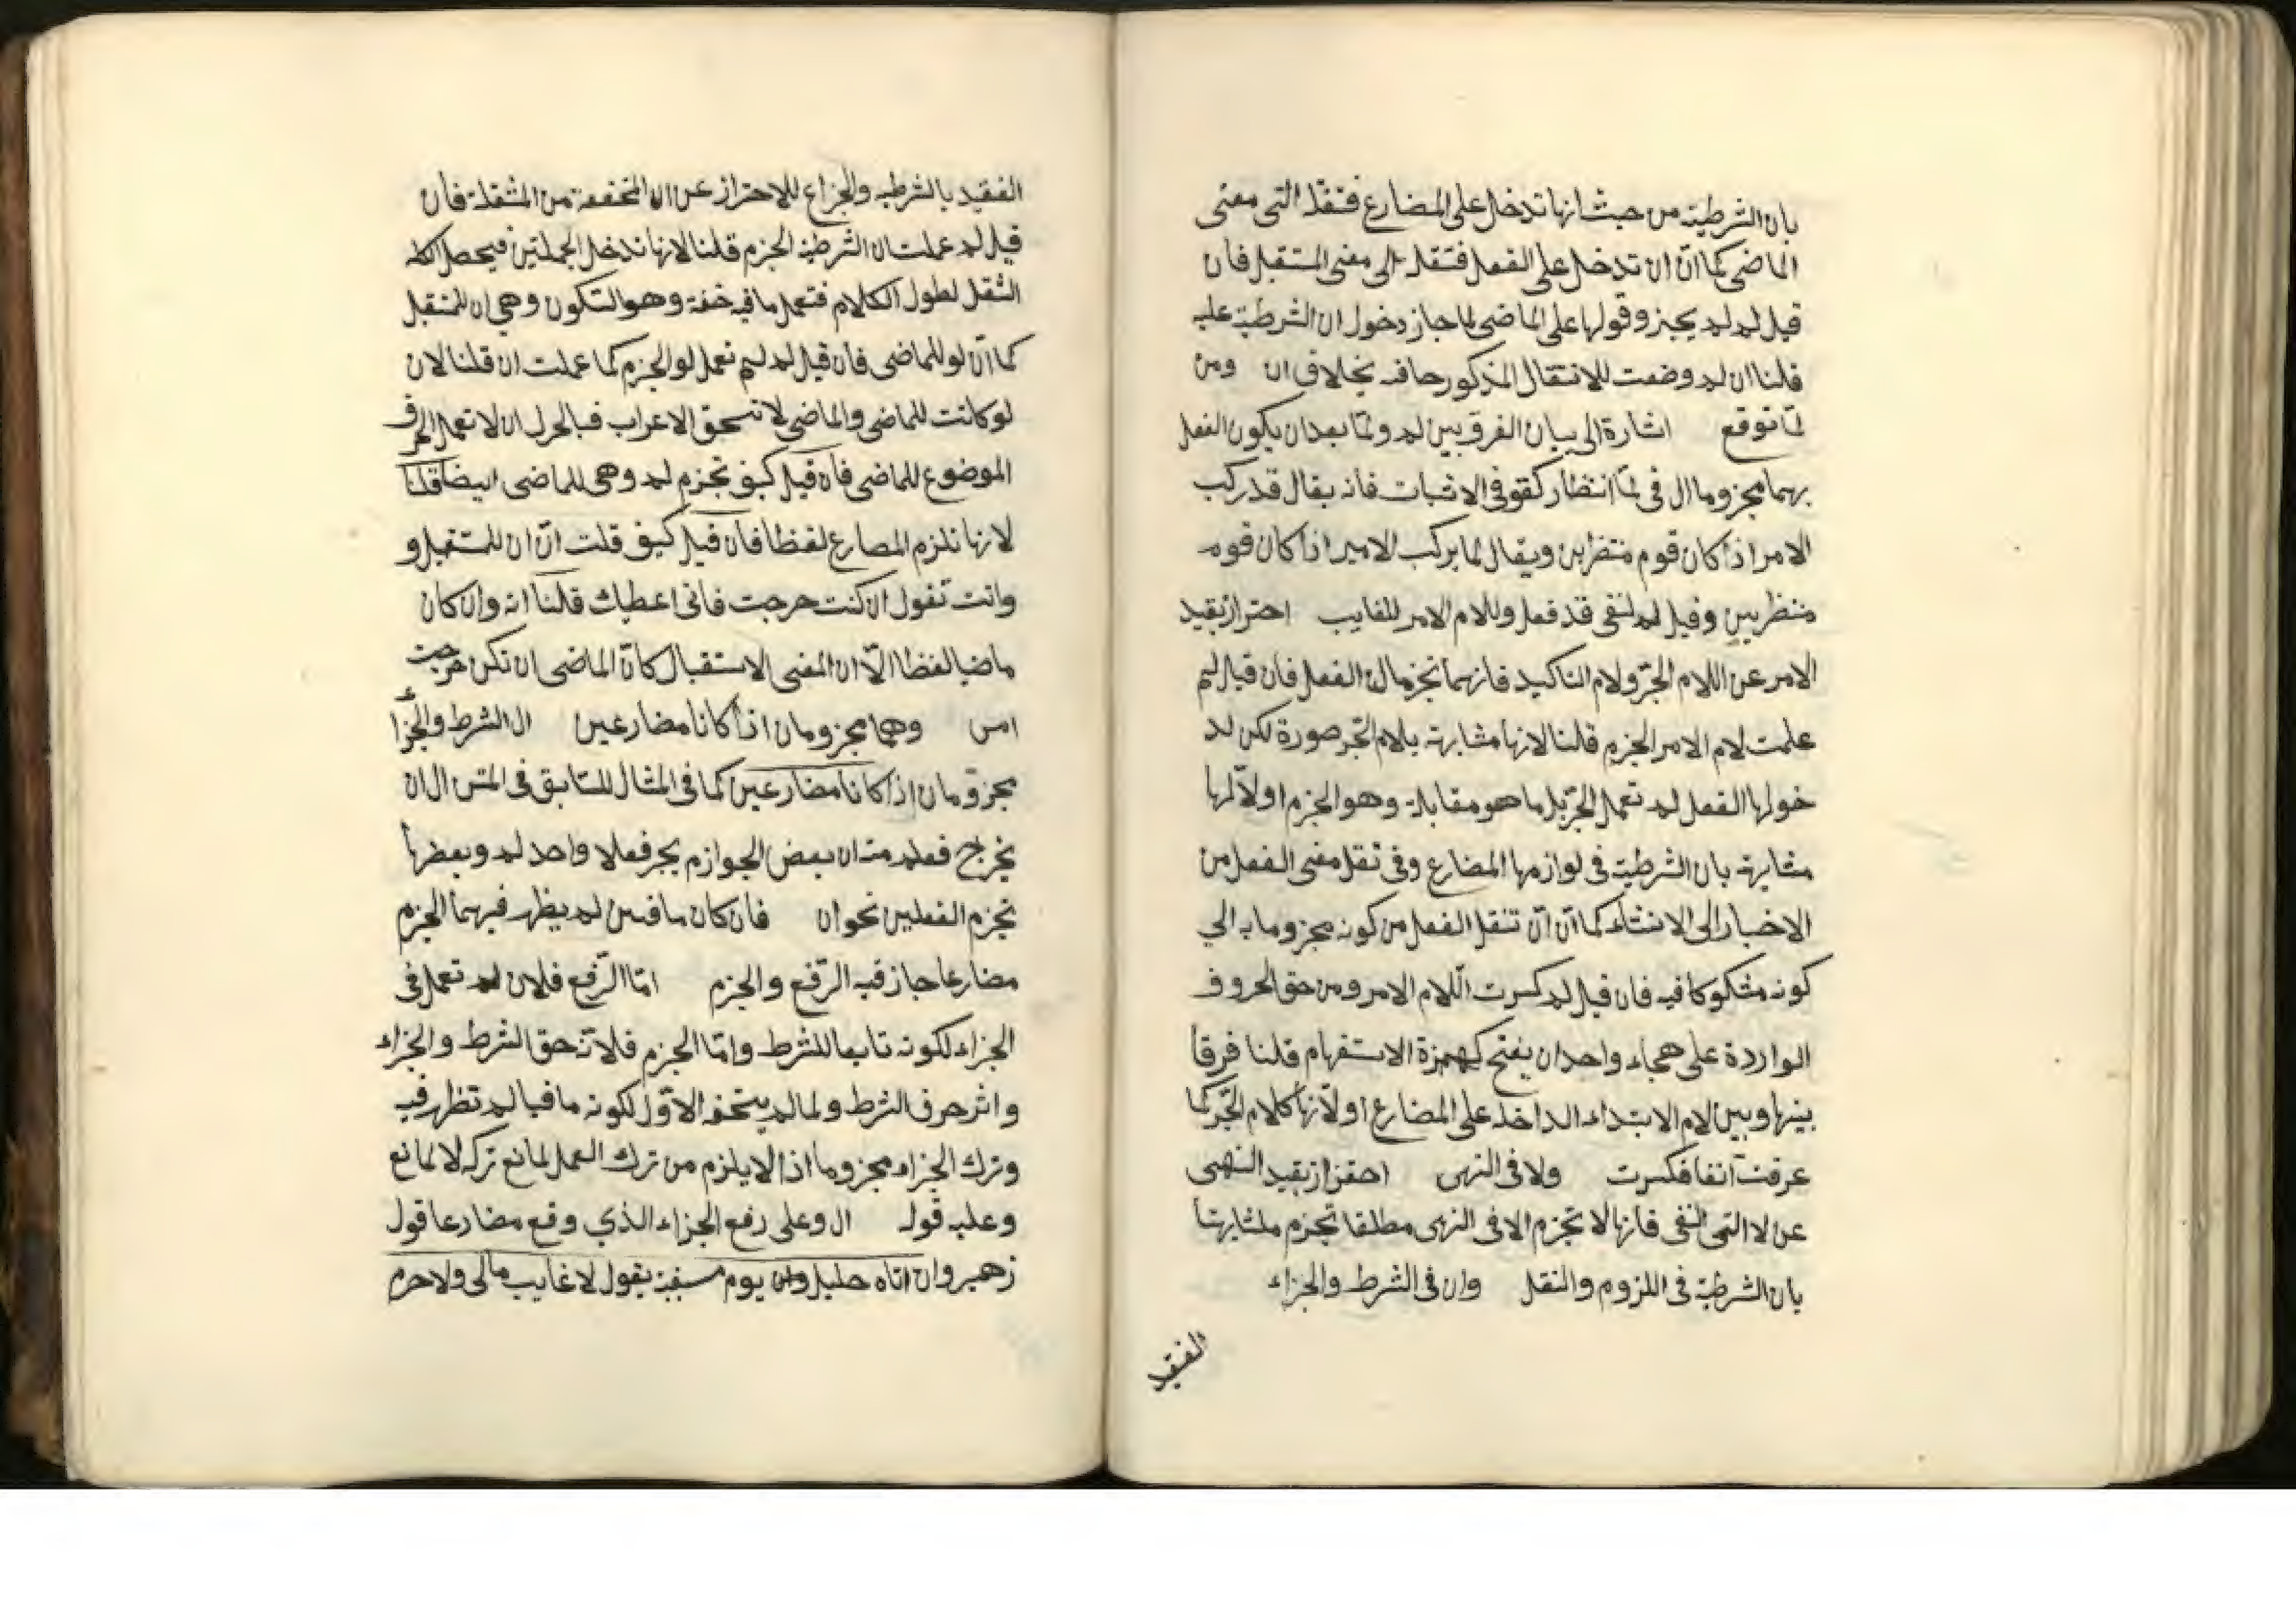 بان الشرطية من حيث انها تدخل على المضارع فتنقله الى معنى
الماضى كما انّ ان تدخل على الفعل فتنقله الى معنى المستقبل فان
قيل لم لم يجز وقولها على الماضى لما جاز دخول ان الشرطية عليه
قلنا ان لم وضعت للانتقال المذكور بخلاف ان ومن
لمّا توقع اشارة الى بيان الفرق بين لم ولمّا بعد ان يكون الفعل
بهما مجزوما ال فى لمّا انتظار كقو فى الاثبات فانه يقال قد ركب
الامر اذا كان قوم منتظرين ويقال لما يركب الامير اذا كان قوم
منتظريين وقيل لم لنفى قد فعل وللام الامر للغايب احتراز بقيد
الامر عن اللام الجرّ ولام التاكيد فانهما تجزمان الفعل فان قيل لم
علمت لام الامر الجزم قلنا لانها مشابهة بلام الجّر صورة لكن لد
خولها الفعل لم تعمل الجرّ بل ما هو مقابله وهو الجزم او لانّها
مشابهة بان الشرطية فى لوازمها المضارع وفى نقل معنى الفعل من
الاخبار الى الانشاء كما انّ انّ تنقل الفعل من كونه مجزوما به الي
كونه مشكوكا فيه فان قيل لم كسرت اللام الامر ومن حق الحروف
الواردة على هجاء واحد ان يفتح كهمزة الاستفهام قلنا فرقا
بينها وبين لام الابتداء الداخلة على المضارع او لانّها كلام الجّر كما
عرفت آنفا فكسرت ولا فى النهى احتراز بقيد النهى
عن لا التى النفى فانها لا تجزم الا فى النهى مطلقا تجزم لمشابهتها
بان الشرطية فى اللزوم والنقل وان فى الشرط والجزاء
الفقيد
الفقيد بالشرطية والجزاع للاحتراز عن ان المخففة من المثقلة فان
قيل لم عملت ان الشرطية الجزم قلنا لانها تدخل الجملتين فيحصل
الثقل لطول الكلام فتعمل ما فيه خفة وهو السكون وهي ان للمستقبل
كما انّ لو للماضى فان قيل لم لم تعمل لو الجزم كما عملت ان قلنا لان
لو كانت للماضى والماضى لا تستحق الاعراب فبالحرى ان لا تعمل الحرف
الموضوع للماضى فان قيل كيف تجزم لم وهى للماضى ايضا قلنا
لانها تلزم المصارع لفظا فان قيل كيف قلت انّ ان للمستقبل و
وانت تقول ان كنت خرجت فانى اعطيك قلنا انه وان كان
ماضيا لفظا الاّ ان المعنى الاستقبال كانّ الماضى ان تكن خرجت
امس وهما مجزومان اذا كانا مضارعين ال الشرط والجزاء
مجزومان اذا كانا مضارعين كما فى المثال السّابق فى المتن ال ان
يخرج فعلم منه ان بعض الجوازم يجز فعلا واحد لم وبعضها
تجزم الفعلين نحو ان فان كان ماضيين لم يظهر فيهما الجزم
مضارعا جاز فيه الرّفع والجزم امّا الرّفع فلان لم تعمل فى
الجزاء لكونه تابعا للشرط وامّا الجزم فلانّه حق الشرط والجزاء
واثر حرف الشرط ولما لم يستحق الاوّل لكونه ماضيا لم تظهر فيه
وترك الجزاء مجزوما اذا لا يلزم من ترك العمل لمانع تركه لا لمانع
وعليه قوله ال وعلى رفع الجزاء الذي وقع مضارعا قول
زهير وان اتاه خليل يوم مسغبة يقول لا غايب مالى ولا حرم